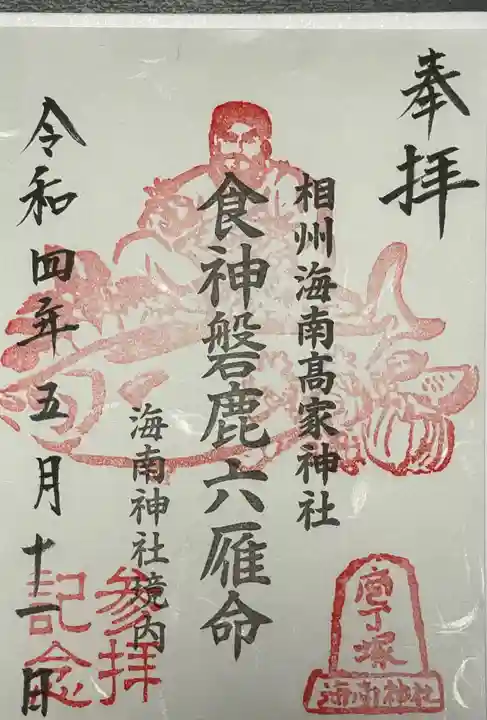 奉拝
相州海南高家神社
食神磐鹿六雁命
海南神社境内
令和四年五月十一日
参拝
記念
庖丁塚
海南神社